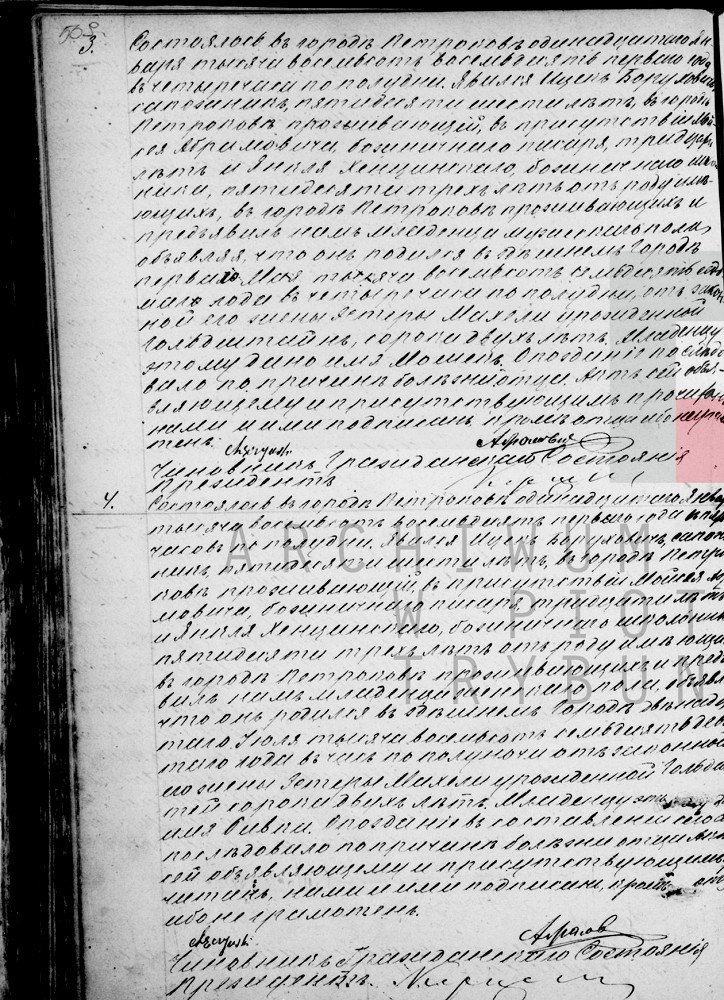 3.
Состоялось въ городѣ Петроковѣ одинадцатаго Ян-
варя тысяча восемьсотъ восемьдесятъ перваго года
въ четыре часа по полудни. Явился Ицекъ Боруховичъ
сапожникъ, пятидесяти шести лѣтъ, въ городѣ
Петроковѣ проживающій, въ присутствіи
Абрамовича, божничнаго писаря, тридцати
лѣтъ и Янкля Хенцинскаго, божничнаго
пятидесяти трехъ лѣтъ отъ роду имѣ-
ющихъ, въ городѣ Петроковѣ проживающихъ и
предъявилъ намъ младенца мужескаго пола,
объявляя, что онъ родился въ здѣшнемъ городѣ
перваго Мая тысяча восемьсотъ семьдесятъ
года въ четыре часа по полудни, отъ закон-
ной его жены Эстеры Махели урожденной
Гольдштайнъ, сорока двухъ лѣтъ. Младенцу
этому дано имя Мошекъ. Опозданіе послѣдо-
вало по причинѣ болѣзни отца. Актъ сей объя-
вляющему и присутствующимъ прочитанъ,
нами и ими подписанъ, кромѣ отца ибо неграмо-
тенъ.
Чиновникъ Гражданскаго Состоянія
Президентъ
4.
Состоялось въ городѣ Петроковѣ одинадцатаго Января
тысяча восемьсотъ восемьдесятъ перваго года въ
часовъ по полудни. Явился Ицекъ Боруховичъ, сапож-
никъ, пятидесяти шести лѣтъ, въ городѣ Петро-
ковѣ проживающій, въ присутствіи Мойсея Абра-
мовича, божничнаго писаря, тридцати лѣтъ
и Янкля Хенцинскаго, божничнаго школьника
пятидесяти трехъ лѣтъ отъ роду имѣющихъ
въ городѣ Петроковѣ проживающихъ и предъя-
вилъ намъ младенца женскаго пола, объявляя
что онъ родился въ здѣшнемъ городѣ двѣнадца-
таго Іюля тысяча восемьсотъ семьдесятъ девя-
таго года въ часъ по полуночи отъ законной
его жены Эстеры Махели урожденной Гольдш-
тей сорока двухъ лѣтъ. Младенцу этому дано
имя Ривка. Опозданіе въ составленіи сего
послѣдовало по причинѣ болѣзни отца. Актъ
сей объявляющему и присутствующимъ про-
читанъ, нами и ими подписанъ, кромѣ отца
ибо неграмотенъ.
Чиновникъ Гражданскаго Состоянія
Президентъ.
ARCHIWUM
W PIOT
TRYBUN